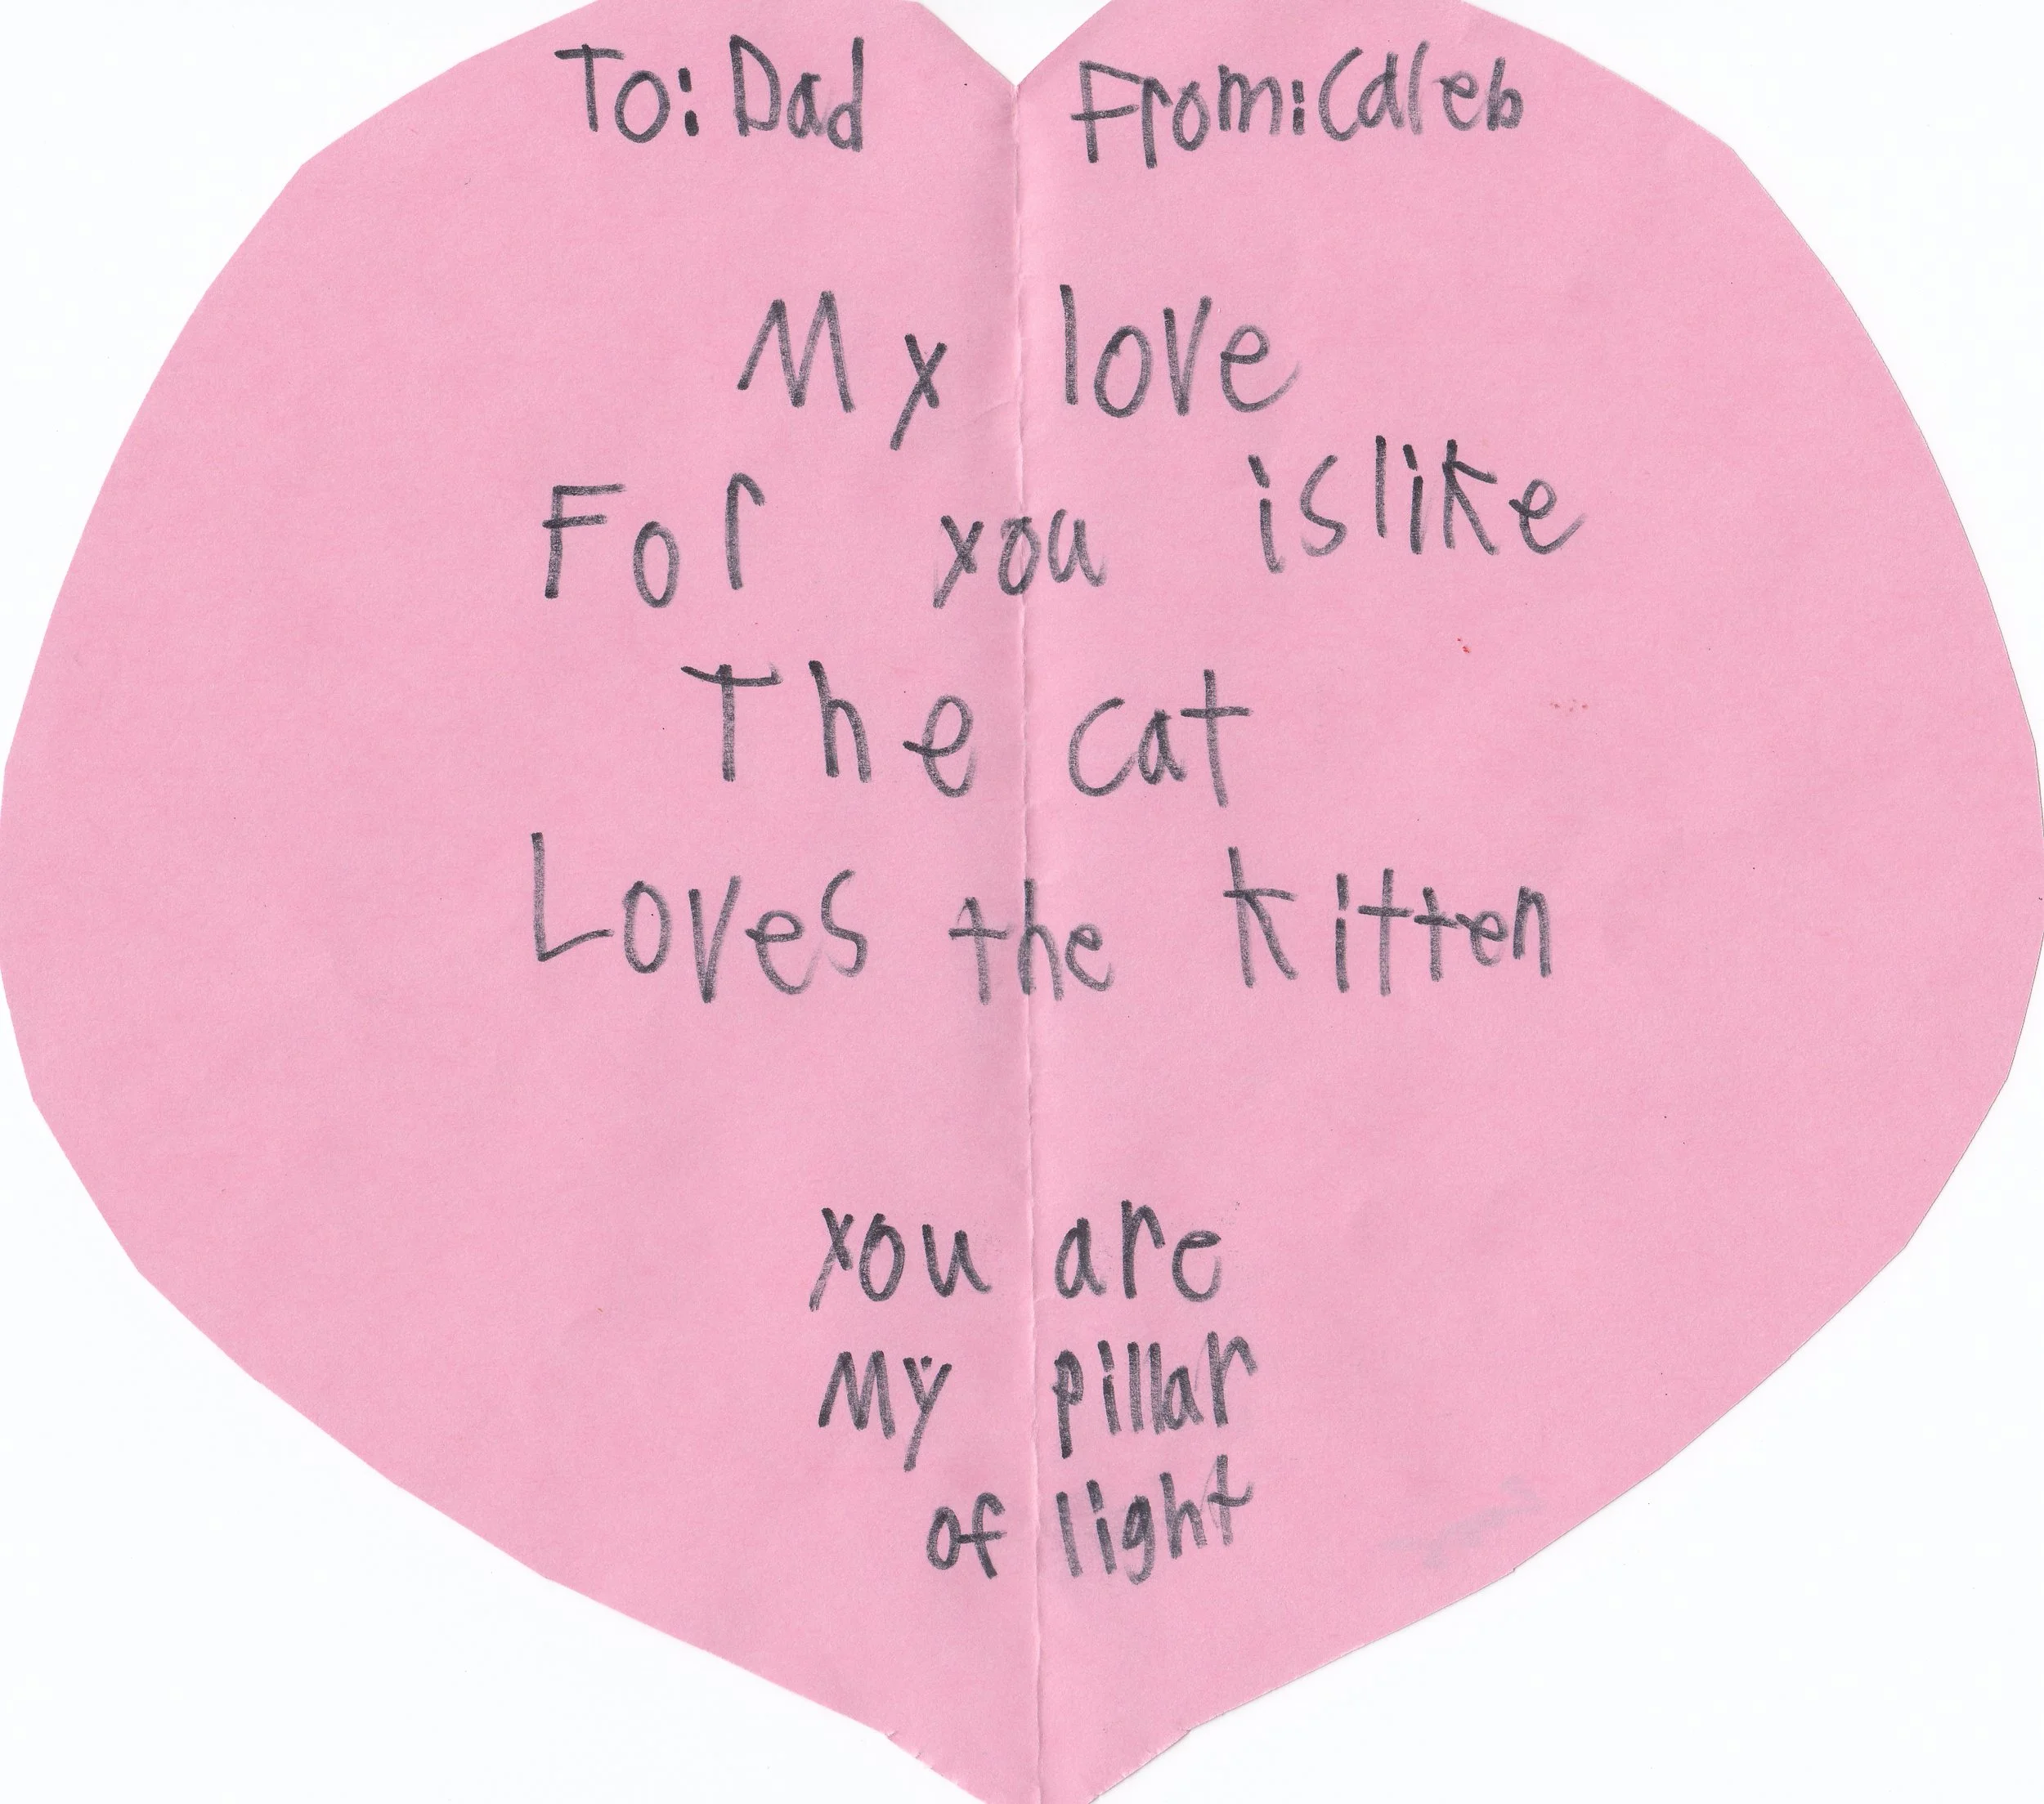 To: Dad From: Caleb
My love
For you is like
The cat
Loves the kitten
you are
My pillar
of light